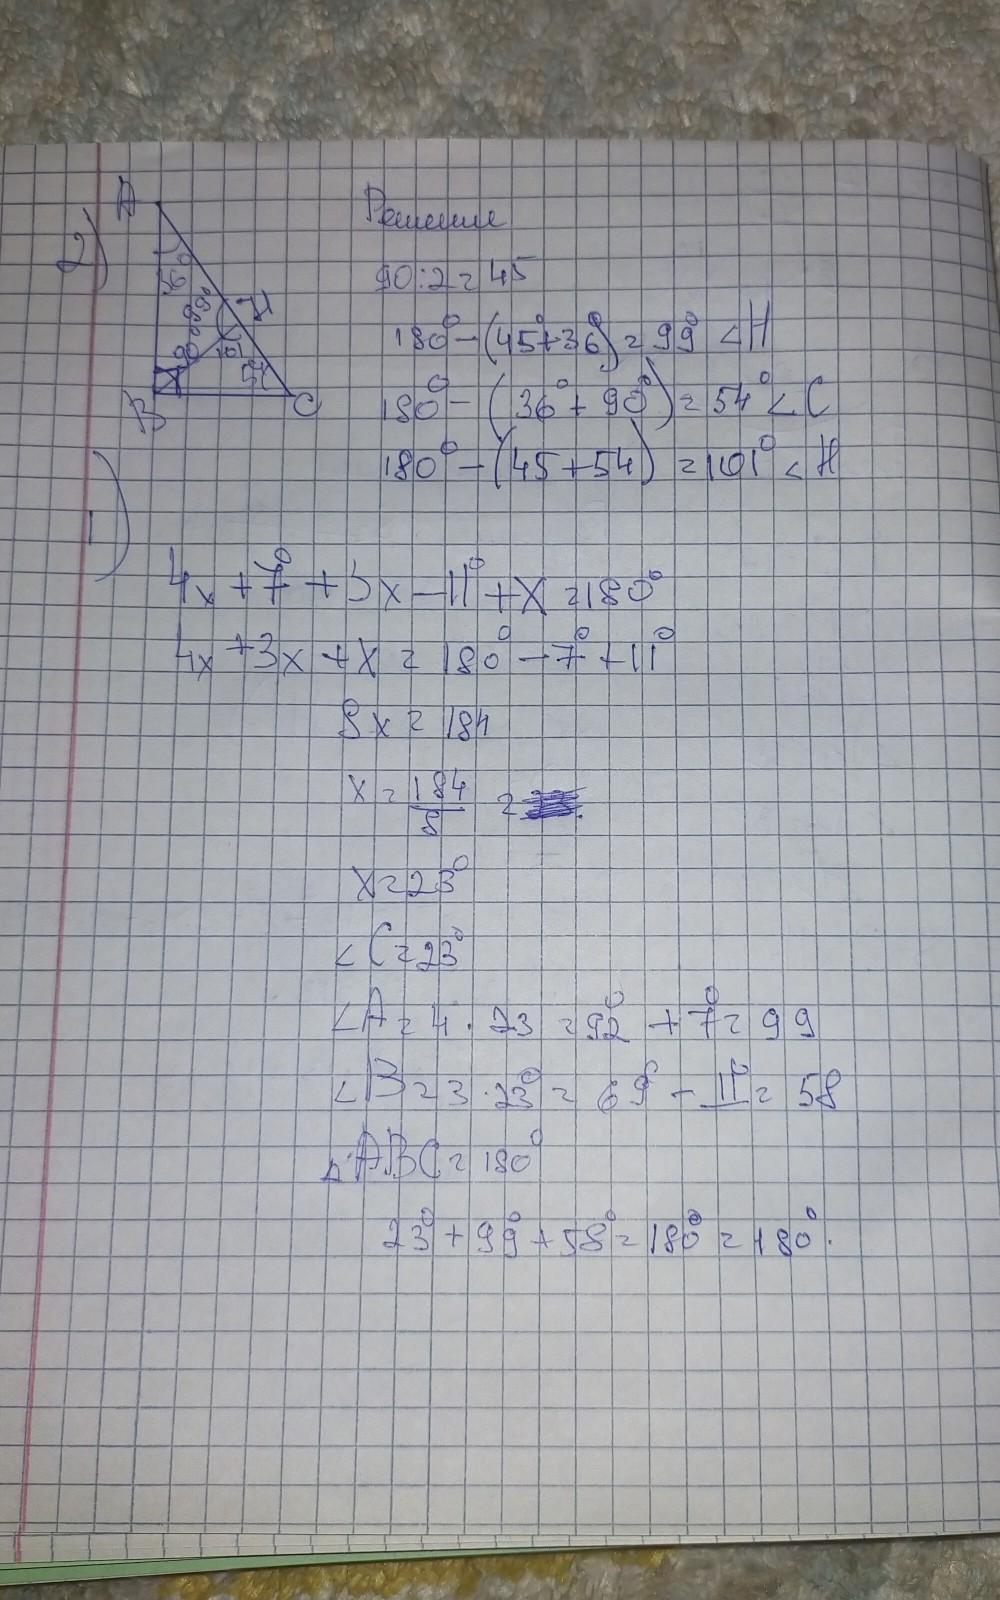 2)
A
36°
99°
H
90°
101
54
B
C
Решение
90:2=45
180°-(45°+36°)=99° <H
180°-(36°+90°)=54° <C
180°-(45+54)=101° <H
1)
4x+7°+3x-11°+x=180°
4x+3x+x=180°-7°+11°
8x=184
x=184/8=
x=23°
<C=23°
<A=4·23=92°+7°=99
<B=3·23°=69°-11°=58
△ABC=180°
23°+99°+58°=180°=180°.